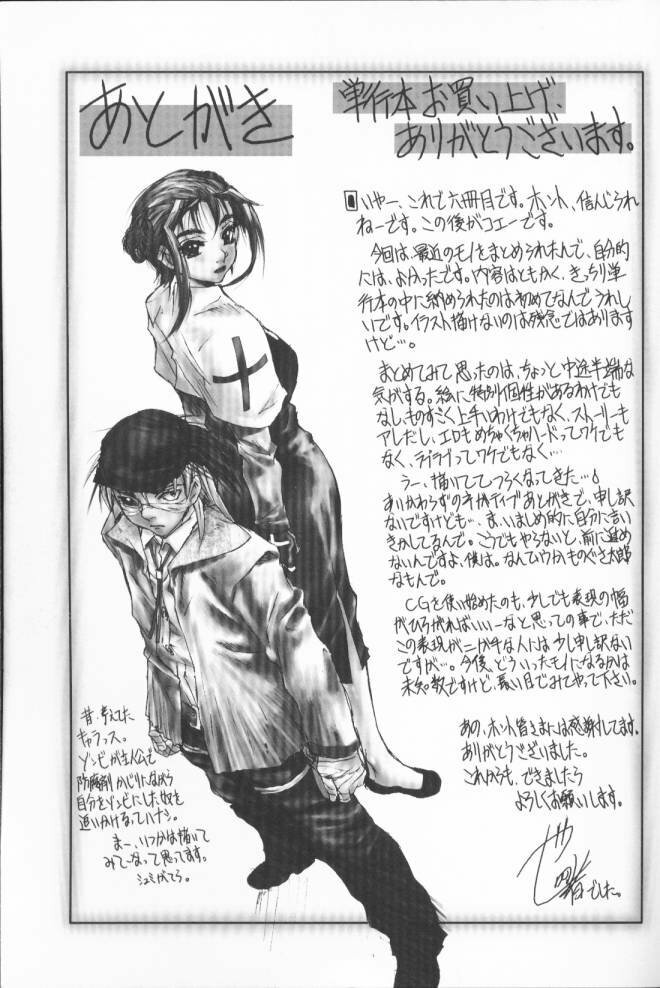 あとがき
単行本お買い上げ、
ありがとうございます。
いやー、これで六冊目です。ホント、信じられ
ねーです。この後がコエーです。
今回は、最近のモノをまとめられたんで、自分的
には、よかったです。内容はともかく、きっちり単
行本の中に納められたのは初めてなんでうれし
いです。イラスト描けないのは残念ではあります
けど…。
まとめてみて思ったのは、ちょっと中途半端な
気がする。絵に特別個性があるわけでも
なし、ものすごく上手いわけでもなく、ストーリーも
アレだし、エロもめちゃくちゃハードってワケでも
なく、ラブラブってワケでもなく…
うー、描いててつらくなってきた…。
あいかわらずのネガティブあとがきで、申し訳
ないですけども…、ま、いましめ的に自分に言い
きかしてるんで。こうでもやらないと、前に進め
ないんですよ、僕は。なんていうかものぐさ太郎
なもんで。
CGを使い始めたのも、少しでも表現の幅
がひろがればいいーなと思っての事で、ただ
この表現がニガ手な人には少し申訳ない
ですが…。今後、どういったモノになるかは
未知数ですけど、長い目でみてやって下さい。
あの、ホント皆さまには感謝してます。
ありがとうございました。
これからも、できましたら
よろしくお願いします。
でした。
昔、考えてた
キャラっス。
ゾンビが主人公で
防腐剤かじりながら
自分をゾンビにした奴を
追いかけるってハナシ。
まー、いつかは描いて
みてーなって思ってます。
シュミがてら。